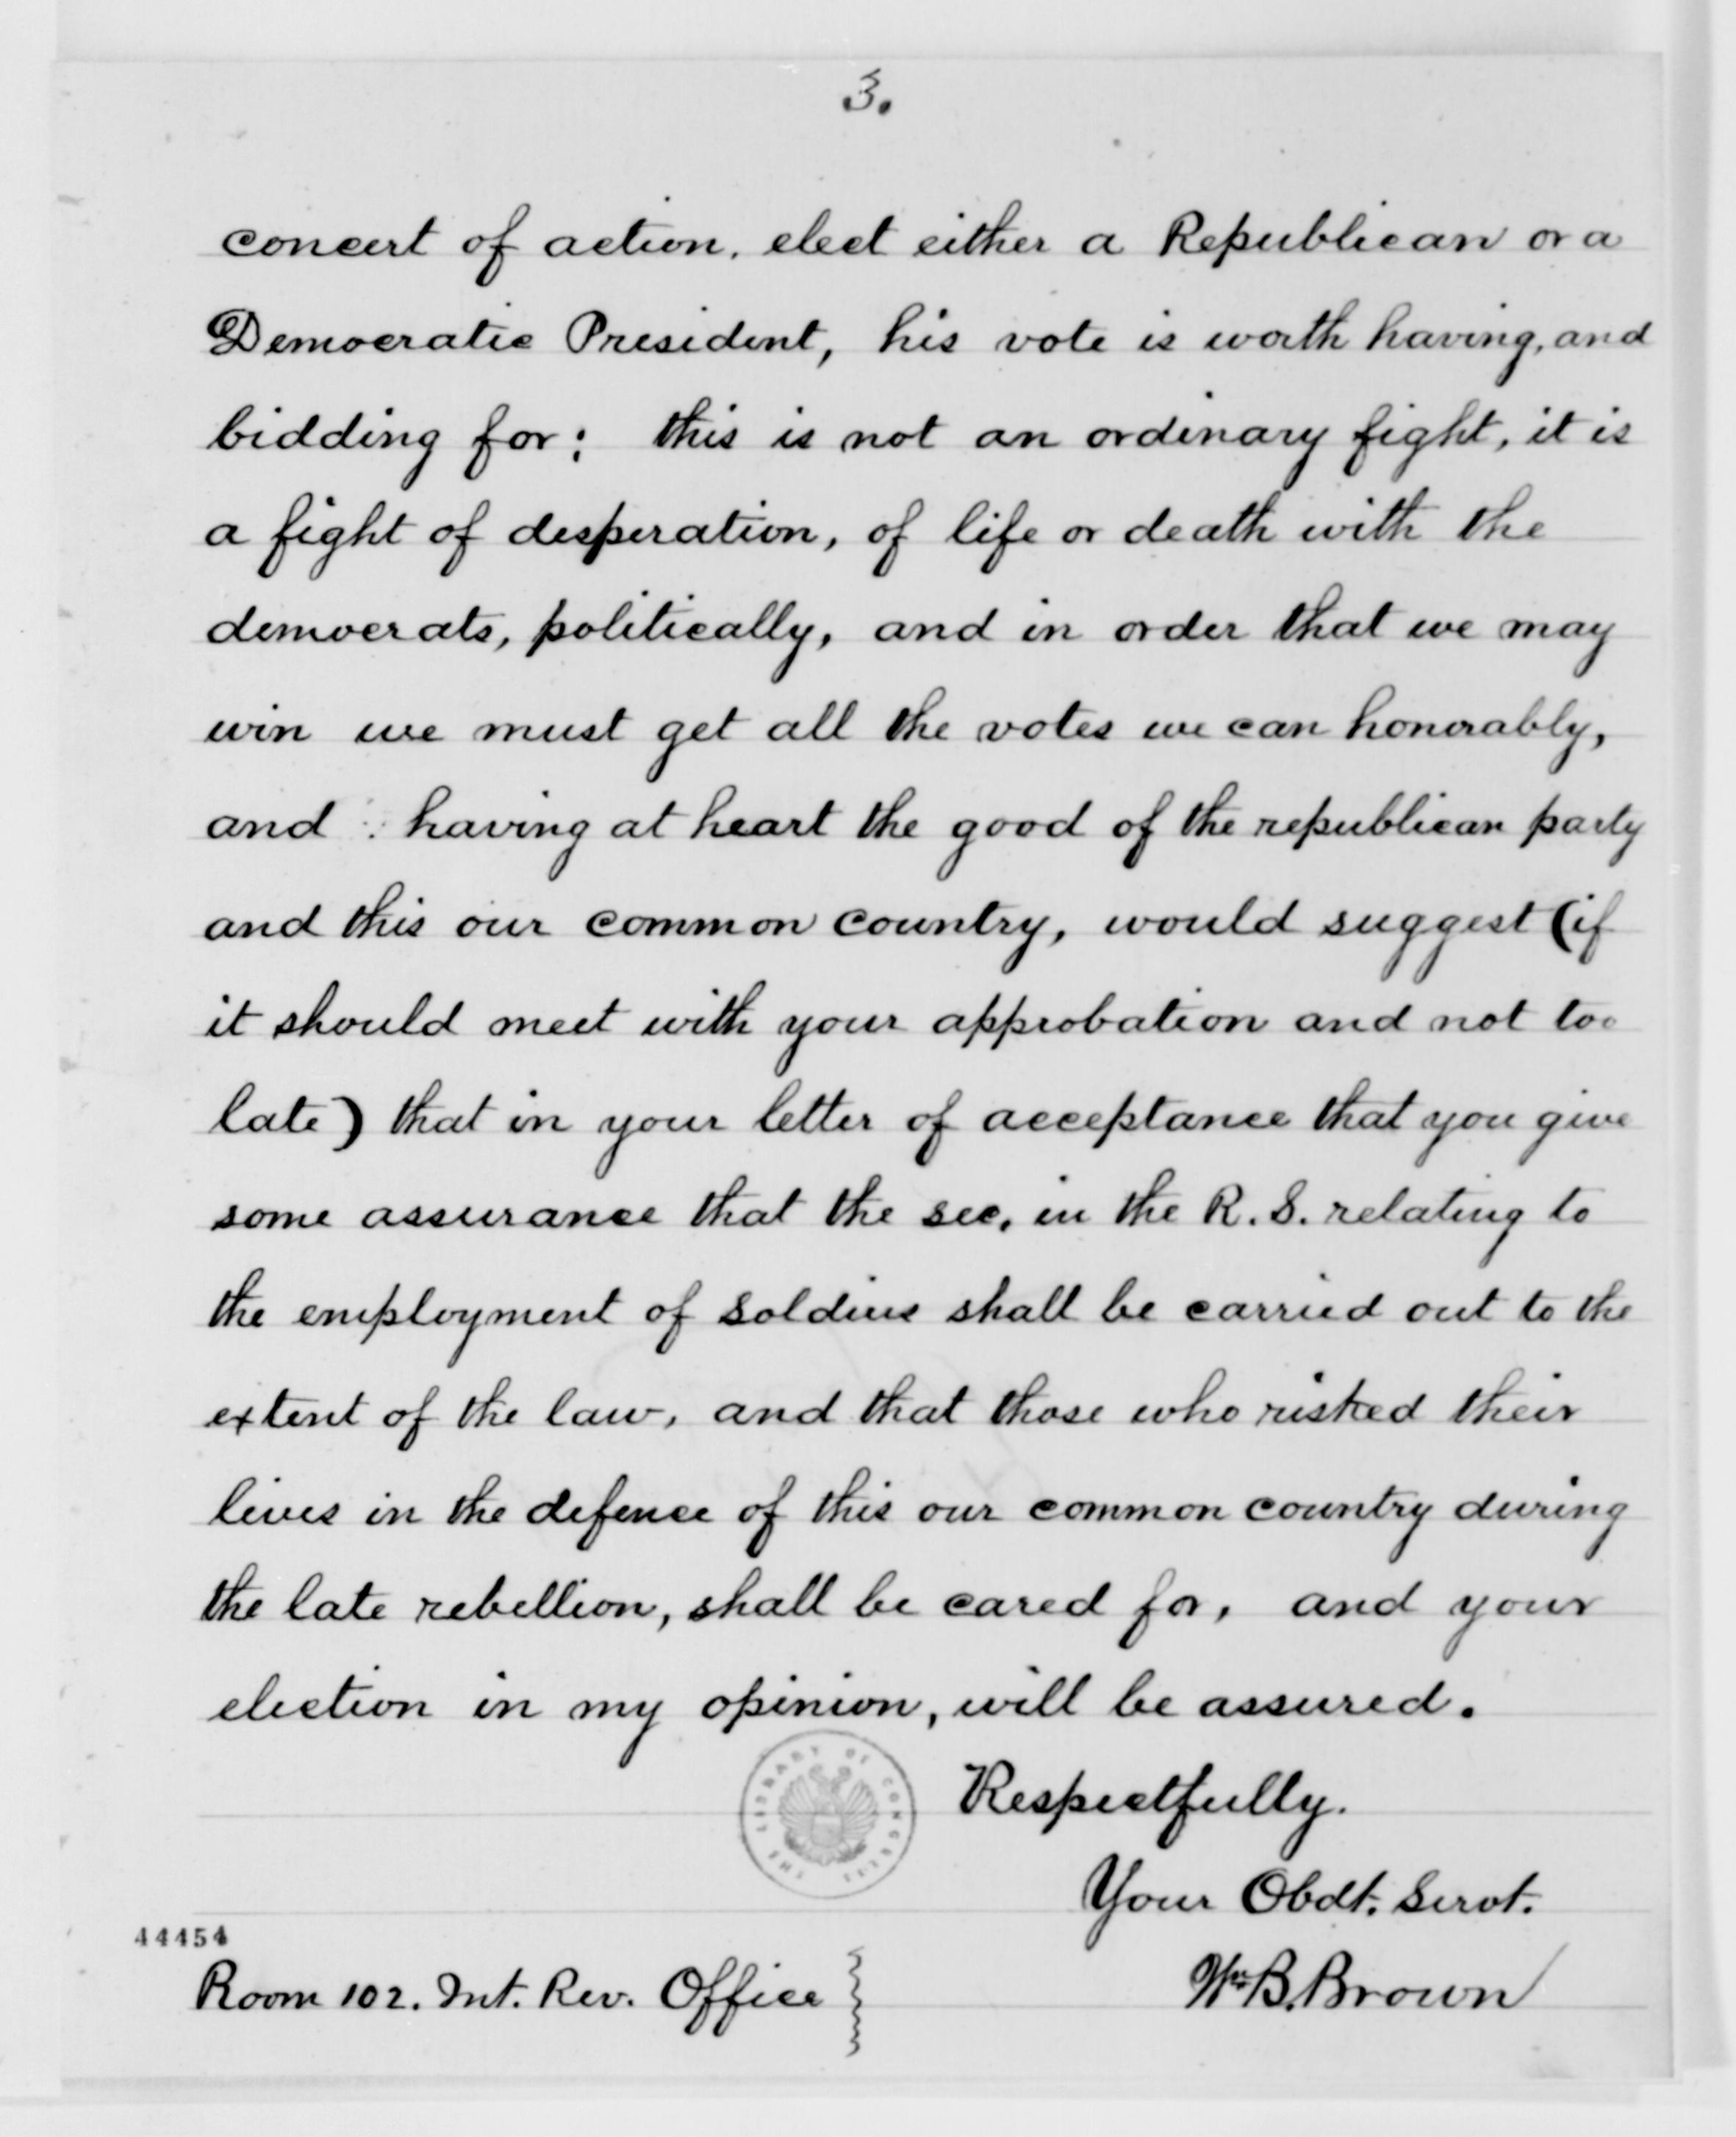 3.
concert of action, elect either a Republican or a
Democratic President, his vote is worth having, and
bidding for; this is not an ordinary fight, it is
a fight of desperation, of life or death with the
democrats, politically, and in order that we may
win we must get all the votes we can honorably,
and having at heart the good of the republican party
and this our common country, would suggest (if
it should meet with your approbation and not too
late) that in your letter of acceptance that you give
some assurance that the sec. in the R.S. relating to
the employment of soldiers shall be carried out to the
extent of the law, and that those who risked their
lives in the defence of this our common country during
the late rebellion, shall be cared for, and your
election in my opinion, will be assured.
Respectfully.
Your Obdt. Servt.
Wm B. Brown
THE LIBRARY OF CONGRESS
44454
Room 102. Int. Rev. Office